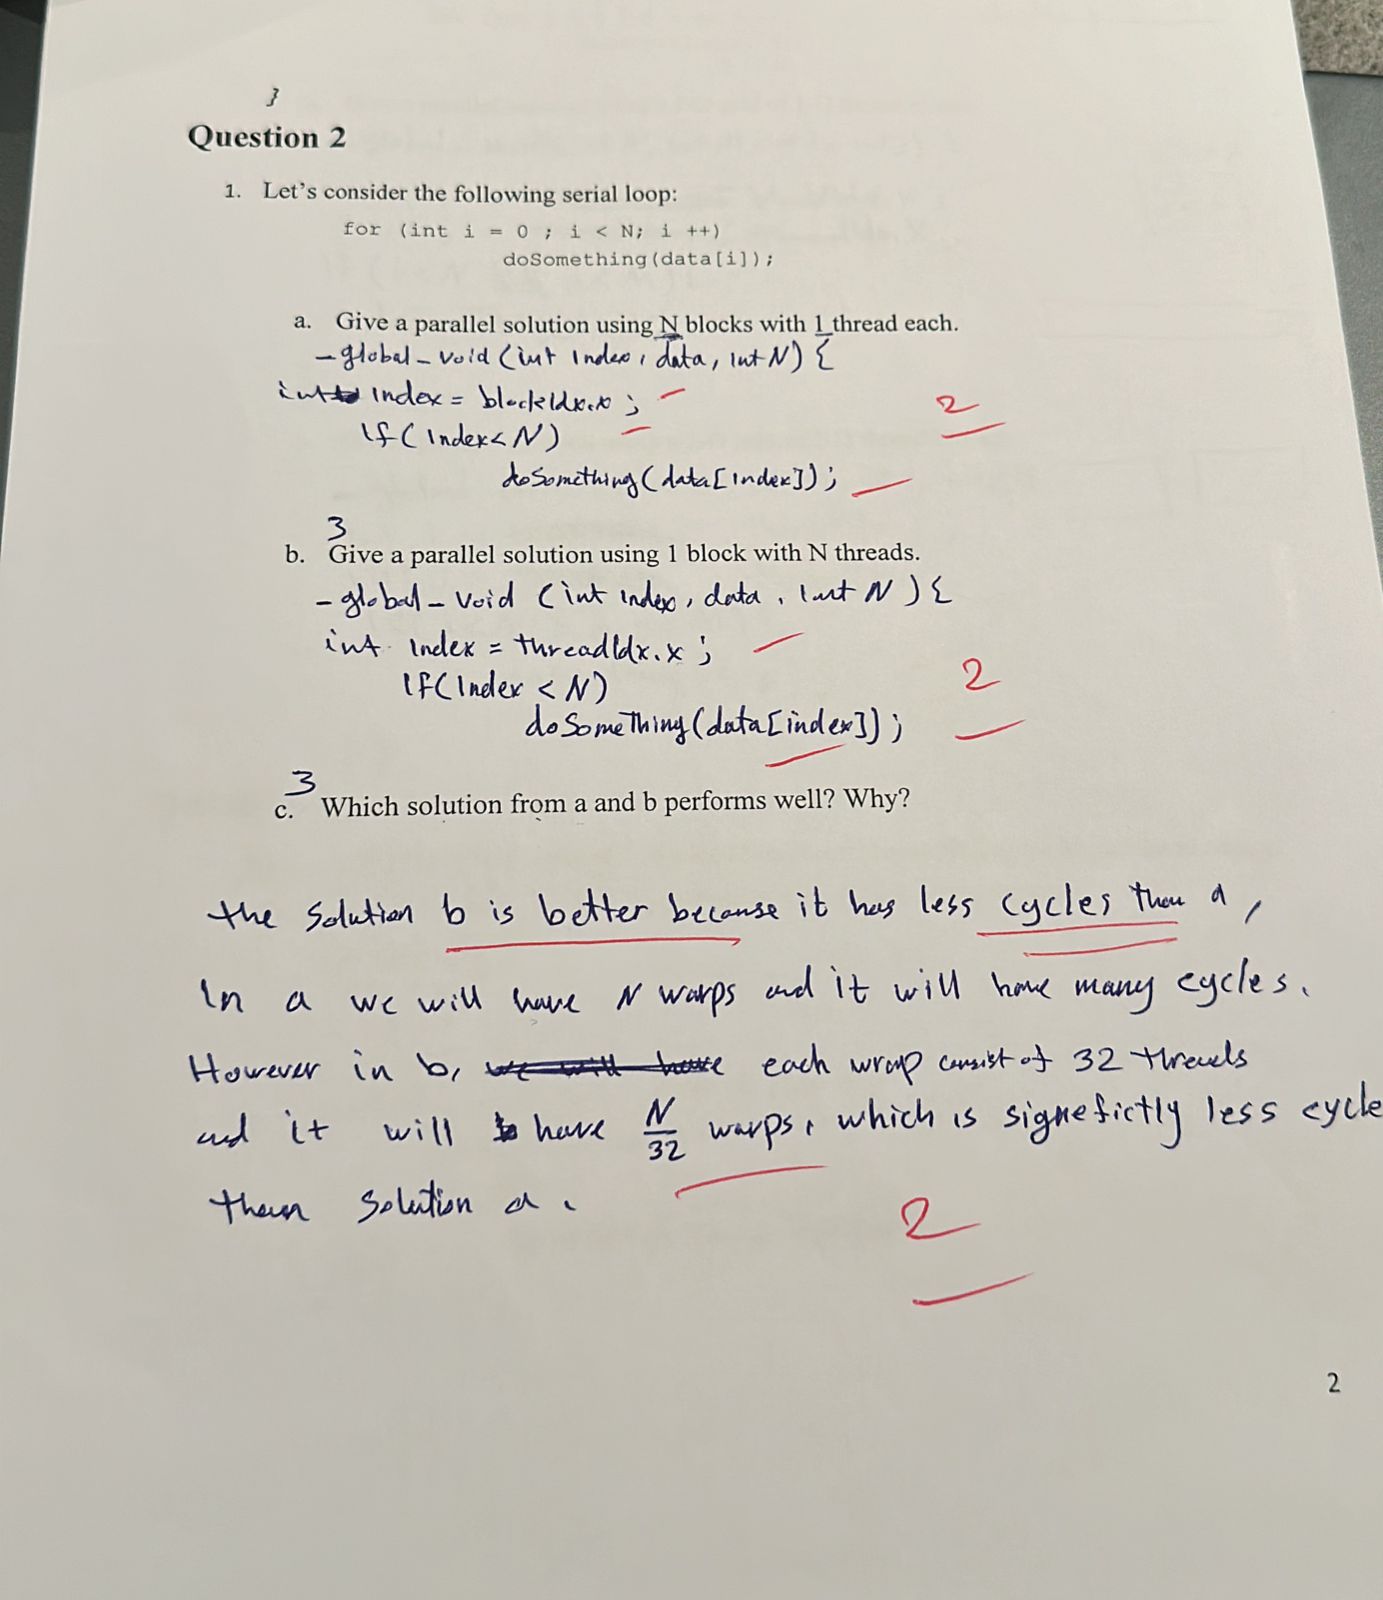 }
Question 2
1. Let's consider the following serial loop:
for (int i = 0 ; i < N; i ++)
doSomething(data[i]);
a. Give a parallel solution using N blocks with 1 thread each.
-global-void (int Index, data, int N) {
int Index = blockIdx.x ;
2
If( Index< N)
doSomething( data[Index]);
}
b. Give a parallel solution using 1 block with N threads.
-global-void (int index, data, int N ) {
int Index = threadIdx.x ;
If(Index < N)
2
doSomeThing(data[index]) ;
}
c. Which solution from a and b performs well? Why?
the Solution b is better because it has less cycles then a ,
In a we will have N warps and it will have many cycles.
However in b, we will have each wrap consist of 32 threads
and it will have N/32 warps, which is signefictly less cycle
then Solution a .
2
2